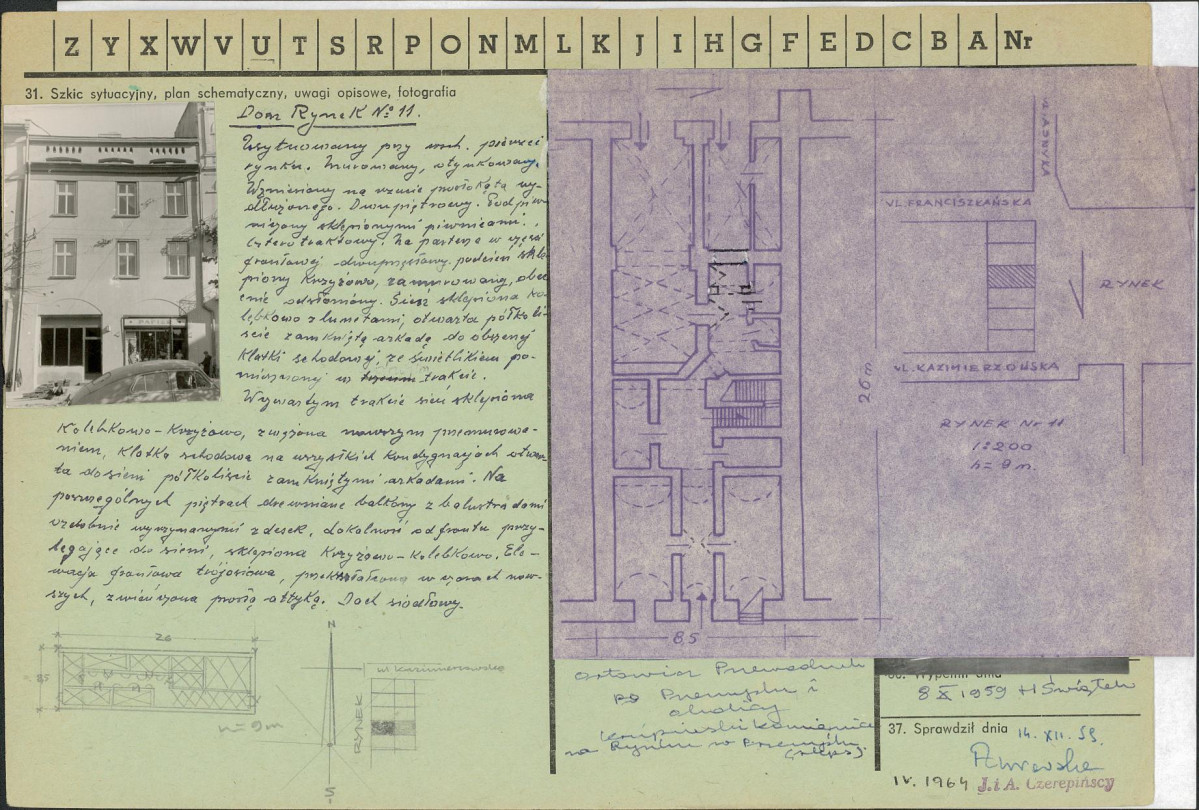 Z Y X W V U T S R P O N M L K J I H G F E D C B A Nr
31. Szkic sytuacyjny, plan schematyczny, uwagi opisowe, fotografia
Dom Rynek Nº 11.
Usytuowany przy wsch. pierzei
rynku. Murowany, otynkowany.
Wzniesiony na rzucie prostokąta wy-
dłużonego. Dwupiętrowy. Podpiw-
niczony sklepionymi piwnicami.
Czterotraktowy. Na parterze w części
frontowej dwuprzęsłowy podcień skle-
piony krzyżowo, zamurowany, obe-
cnie odsłoniony. Sień sklepiona ko-
lebkowo z lunetami, otwarta półkoli-
ście zamkniętą arkadą do obszernej
klatki schodowej, ze świetlikiem po-
mieszczonej w trakcie.
W czwartym trakcie sień sklepiona
kolebkowo-krzyżowo, zwężona nowszym przemurowa-
niem, klatka schodowa na wszystkich kondygnacjach otwar-
ta do sieni półkoliście zamkniętymi arkadami. Na
poszczególnych piętrach drewniane balkony z balustradami
ozdobnie wyrzynanymi z desek, lokalność od frontu przy-
legające do sieni, sklepiona krzyżowo-kolebkowo. Ele-
wacja frontowa trójosiowa, przekształcona w czasach now-
szych, zwieńczona prostą attyką. Dach siodłowy.
26
85
h=9m
N
S
ul. Kazimierzowska
RYNEK
UL. FRANCISZKAŃSKA
RYNEK
UL. KAZIMIERZOWSKA
26 m
RYNEK Nr 11
1:200
h= 9 m.
85
Orłowicz Przewodnik
po Przemyślu i
okolicy
kamienice
na Rynku w Przemyślu
8 X 1959 H Świątek
37. Sprawdził dnia 14. XII. 59.
IV. 1964 J. i A. Czerepińscy